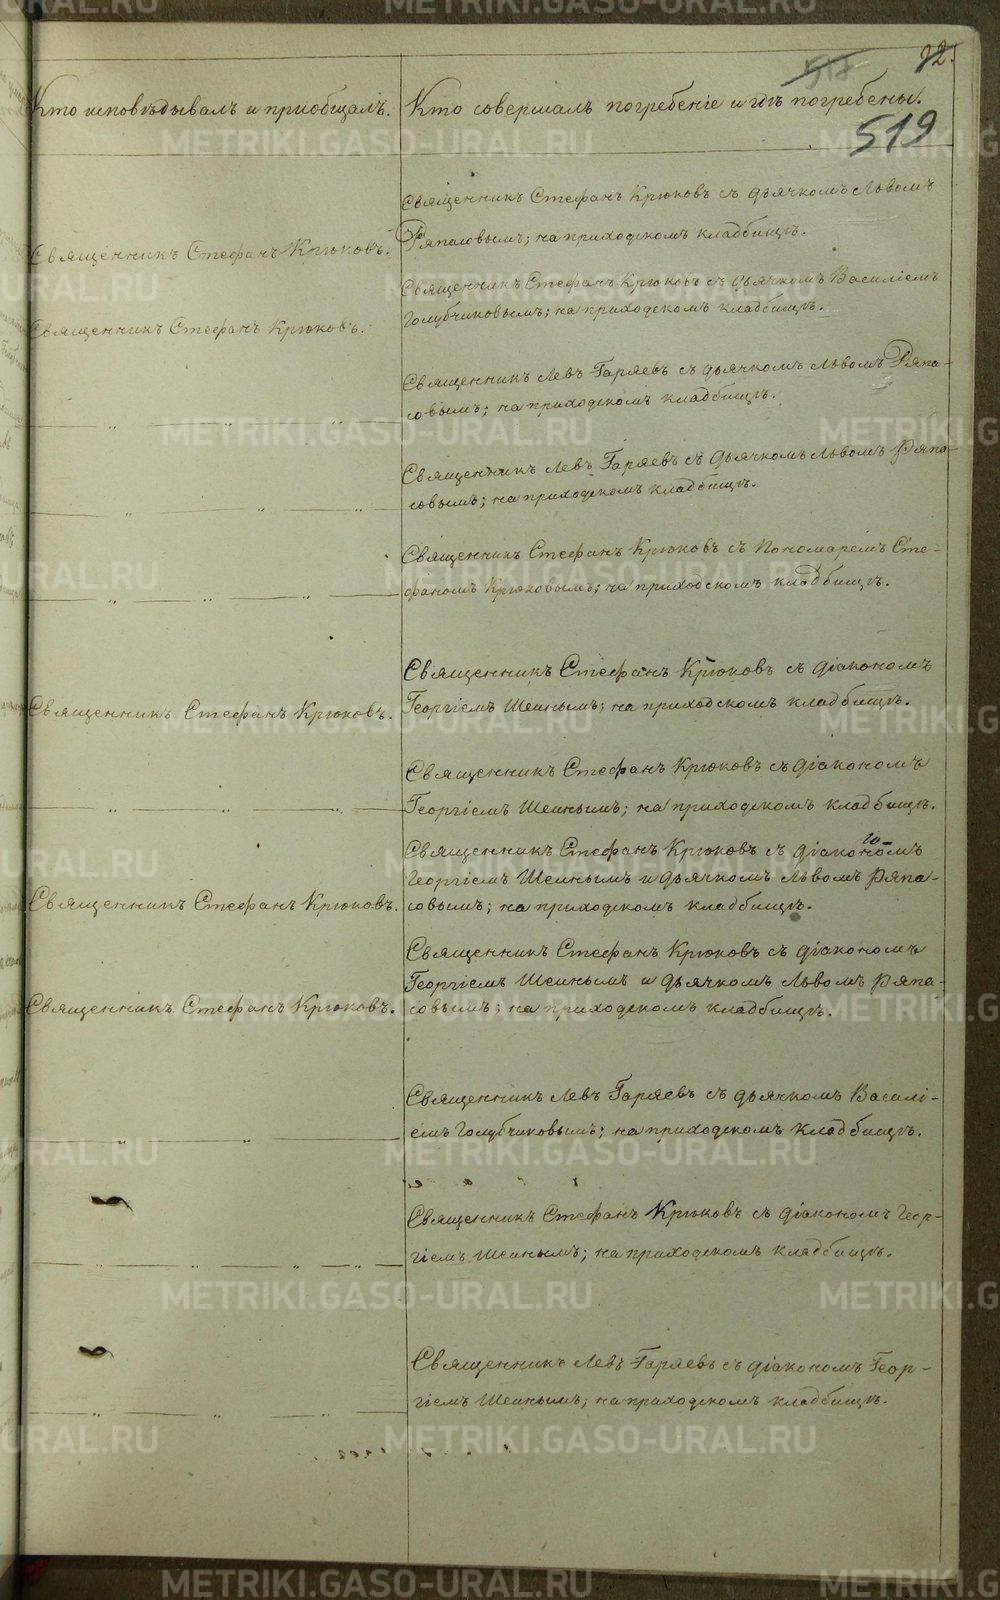 92.
518
Кто исповѣдывалъ и приобщалъ.
Кто совершалъ погребеніе и гдѣ погребены.
519
Священникъ Стефанъ Крюковъ съ дьячкомъ Львомъ
Ряпасовымъ; на приходскомъ кладбищѣ.
Священникъ Стефанъ Крюковъ.
Священникъ Стефанъ Крюковъ съ дьячкомъ Василіемъ
Голубчиковымъ; на приходскомъ кладбищѣ.
Священникъ Стефанъ Крюковъ.
Священникъ Левъ Гаряевъ съ дьячкомъ Львомъ Ряпа-
совымъ; на приходскомъ кладбищѣ.
— „ — „ — „ —
Священникъ Левъ Гаряевъ съ дьячкомъ Львомъ Ряпа-
совымъ; на приходскомъ кладбищѣ.
— „ — „ — „ —
Священникъ Стефанъ Крюковъ съ пономаремъ Сте-
фаномъ Крюковымъ; на приходскомъ кладбищѣ.
— „ — „ — „ —
Священникъ Стефанъ Крюковъ съ діакономъ
Георгіемъ Шеинымъ; на приходскомъ кладбищѣ.
Священникъ Стефанъ Крюковъ.
Священникъ Стефанъ Крюковъ съ діакономъ
Георгіемъ Шеинымъ; на приходскомъ кладбищѣ.
— „ — „ — „ —
Священникъ Стефанъ Крюковъ съ діакономъ
Георгіемъ Шеинымъ и дьячкомъ Львомъ Ряпа-
совымъ; на приходскомъ кладбищѣ.
Священникъ Стефанъ Крюковъ.
Священникъ Стефанъ Крюковъ съ діакономъ
Георгіемъ Шеинымъ и дьячкомъ Львомъ Ряпа-
совымъ; на приходскомъ кладбищѣ.
Священникъ Стефанъ Крюковъ.
Священникъ Левъ Гаряевъ съ дьячкомъ Василі-
емъ Голубчиковымъ; на приходскомъ кладбищѣ.
— „ — „ — „ —
Священникъ Стефанъ Крюковъ съ діакономъ Геор-
гіемъ Шеинымъ; на приходскомъ кладбищѣ.
— „ — „ — „ — „ —
Священникъ Левъ Гаряевъ съ діакономъ Геор-
гіемъ Шеинымъ; на приходскомъ кладбищѣ.
— „ — „ — „ —
METRIKI.GASO-URAL.RU